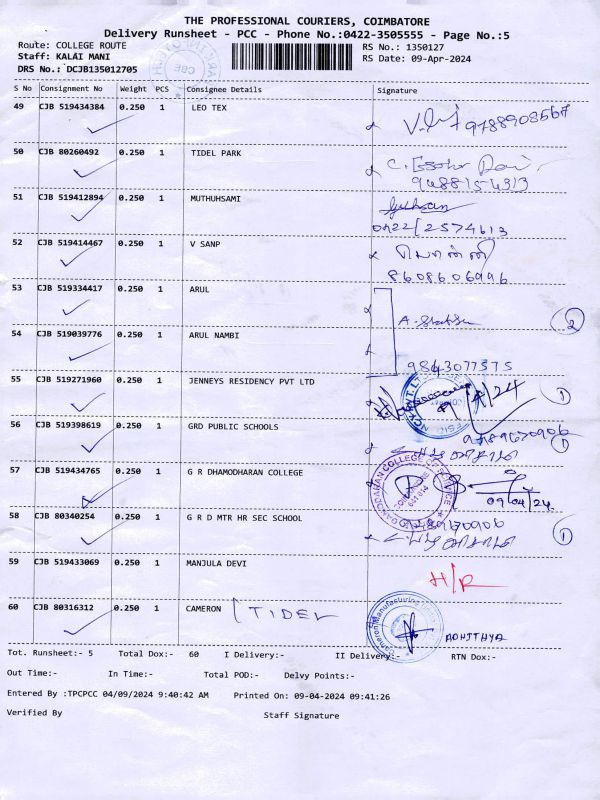 THE PROFESSIONAL COURIERS, COIMBATORE
Delivery Runsheet - PCC - Phone No.:0422-3505555 - Page No.:5
Route: COLLEGE ROUTE RS No.: 1350127
Staff: KALAI MANI RS Date: 09-Apr-2024
DRS No.: DCJB135012705
S No Consignment No Weight PCS Consignee Details Signature
49 CJB 519434384 0.250 1 LEO TEX
9788908567
50 CJB 80260492 0.250 1 TIDEL PARK
51 CJB 519412894 0.250 1 MUTHUHSAMI
0422/2574613
52 CJB 519414467 0.250 1 V SANP
8608606996
53 CJB 519334417 0.250 1 ARUL
2
54 CJB 519039776 0.250 1 ARUL NAMBI
9843077575
55 CJB 519271960 0.250 1 JENNEYS RESIDENCY PVT LTD
1
56 CJB 519398619 0.250 1 GRD PUBLIC SCHOOLS
9789670906
1
57 CJB 519434765 0.250 1 G R DHAMODHARAN COLLEGE
09/04/24
58 CJB 80340254 0.250 1 G R D MTR HR SEC SCHOOL
1
59 CJB 519433069 0.250 1 MANJULA DEVI
H/R
60 CJB 80316312 0.250 1 CAMERON (TIDEL
ADHITHYA
Tot. Runsheet:- 5 Total Dox:- 60 I Delivery:- II Delivery:- RTN Dox:-
Out Time:- In Time:- Total POD:- Delvy Points:-
Entered By :TPCPCC 04/09/2024 9:40:42 AM Printed On: 09-04-2024 09:41:26
Verified By Staff Signature